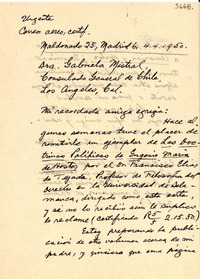 3668.
Urgente
Correo aéreo, certif.
Maldonado 25, Madrid 6, 4.4.1950.
Dra. Gabriela Mistral,
Consulado General de Chile,
Los Angeles, Cal.
Mi recordada amiga egregia:
Hace al
gunas semanas tuve el placer de
remitirle un ejemplar de Las Doc
trinas Políticas de Eugenio María
de Hostos, por el Dr. Francisco Elías
de Tejada, Profesor de Filosofía del
Derecho en la Universidad de Sala
manca, dirigido como este carta,
y si no lo recibió aún le suplico
lo reclame (certificado 2.15.50)
Estoy preparando la publi
cación de otro volumen acerca de mi
padre, y quisiera que una página